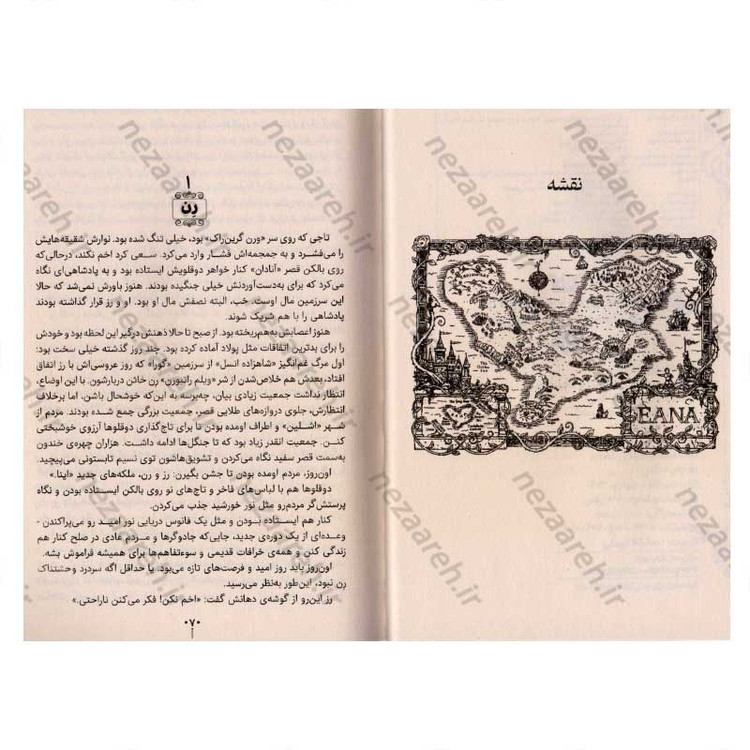 نقشه
EANA
۱
رن
تاجی که روی سر «ورن گرین‌راک» بود، خیلی تنگ شده بود. نوارش شقیقه‌هایش
را می‌فشرد و به جمجمه‌اش فشار وارد می‌کرد. سعی کرد اخم نکند، درحالی‌که
روی بالکن قصر «آنادان» کنار خواهر دوقلویش ایستاده بود و به پادشاهی‌ای نگاه
می‌کرد که برای به‌دست‌آوردنش خیلی جنگیده بودند. هنوز باورش نمی‌شد که حالا
این سرزمین مال اوست. خب، البته نصفش مال او بود. او و رز قرار گذاشته بودند
پادشاهی را با هم شریک شوند.
هنوز اعصابش به‌هم‌ریخته بود. از صبح تا حالا ذهنش درگیر این لحظه بود و خودش
را برای بدترین اتفاقات مثل پولاد آماده کرده بود. چند روز گذشته خیلی سخت بود:
اول مرگ غم‌انگیز «شاهزاده انسل» از سرزمین «گورا» که روز عروسی‌اش با رز اتفاق
افتاد، بعدش هم خلاص‌شدن از شر «ویلم راتبورن» رن خائن دربارشون. با این اوضاع،
انتظار نداشت جمعیت زیادی بیان، چه‌برسه به این‌که خوشحال باشن، اما برخلاف
انتظارش، جلوی دروازه‌های طلایی قصر، جمعیت بزرگی جمع شده بودند. مردم از
شهر «اشلین» و اطراف اومده بودن تا برای تاج‌گذاری دوقلوها آرزوی خوشبختی
کنن. جمعیت انقدر زیاد بود که تا جنگل‌ها ادامه داشت. هزاران چهره‌ی خندون
به‌سمت قصر سفید نگاه می‌کردن و تشویق‌هاشون توی نسیم تابستونی می‌پیچید.
اون‌روز، مردم اومده بودن تا جشن بگیرن: رز و رن، ملکه‌های جدید «اینا.»
دوقلوها هم با لباس‌های فاخر و تاج‌های نو روی بالکن ایستاده بودن و نگاه
پرستش‌گر مردم‌رو مثل نور خورشید جذب می‌کردن.
کنار هم ایستاده بودن و مثل یک فانوس دریایی نور امید رو می‌پراکندن -
وعده‌ای از یک دوره‌ی جدید، جایی‌که جادوگرها و مردم عادی در صلح کنار هم
زندگی کنن و همه‌ی خرافات قدیمی و سوءتفاهم‌ها برای همیشه فراموش بشه.
اون‌روز باید روز امید و فرصت‌های تازه می‌بود. یا حداقل اگه سردرد وحشتناک
رن نبود، این‌طور به‌نظر می‌رسید.
رز این‌رو از گوشه‌ی دهانش گفت: «اخم نکن! فکر می‌کنن ناراحتی.»
۰۷۰
nezaareh.ir